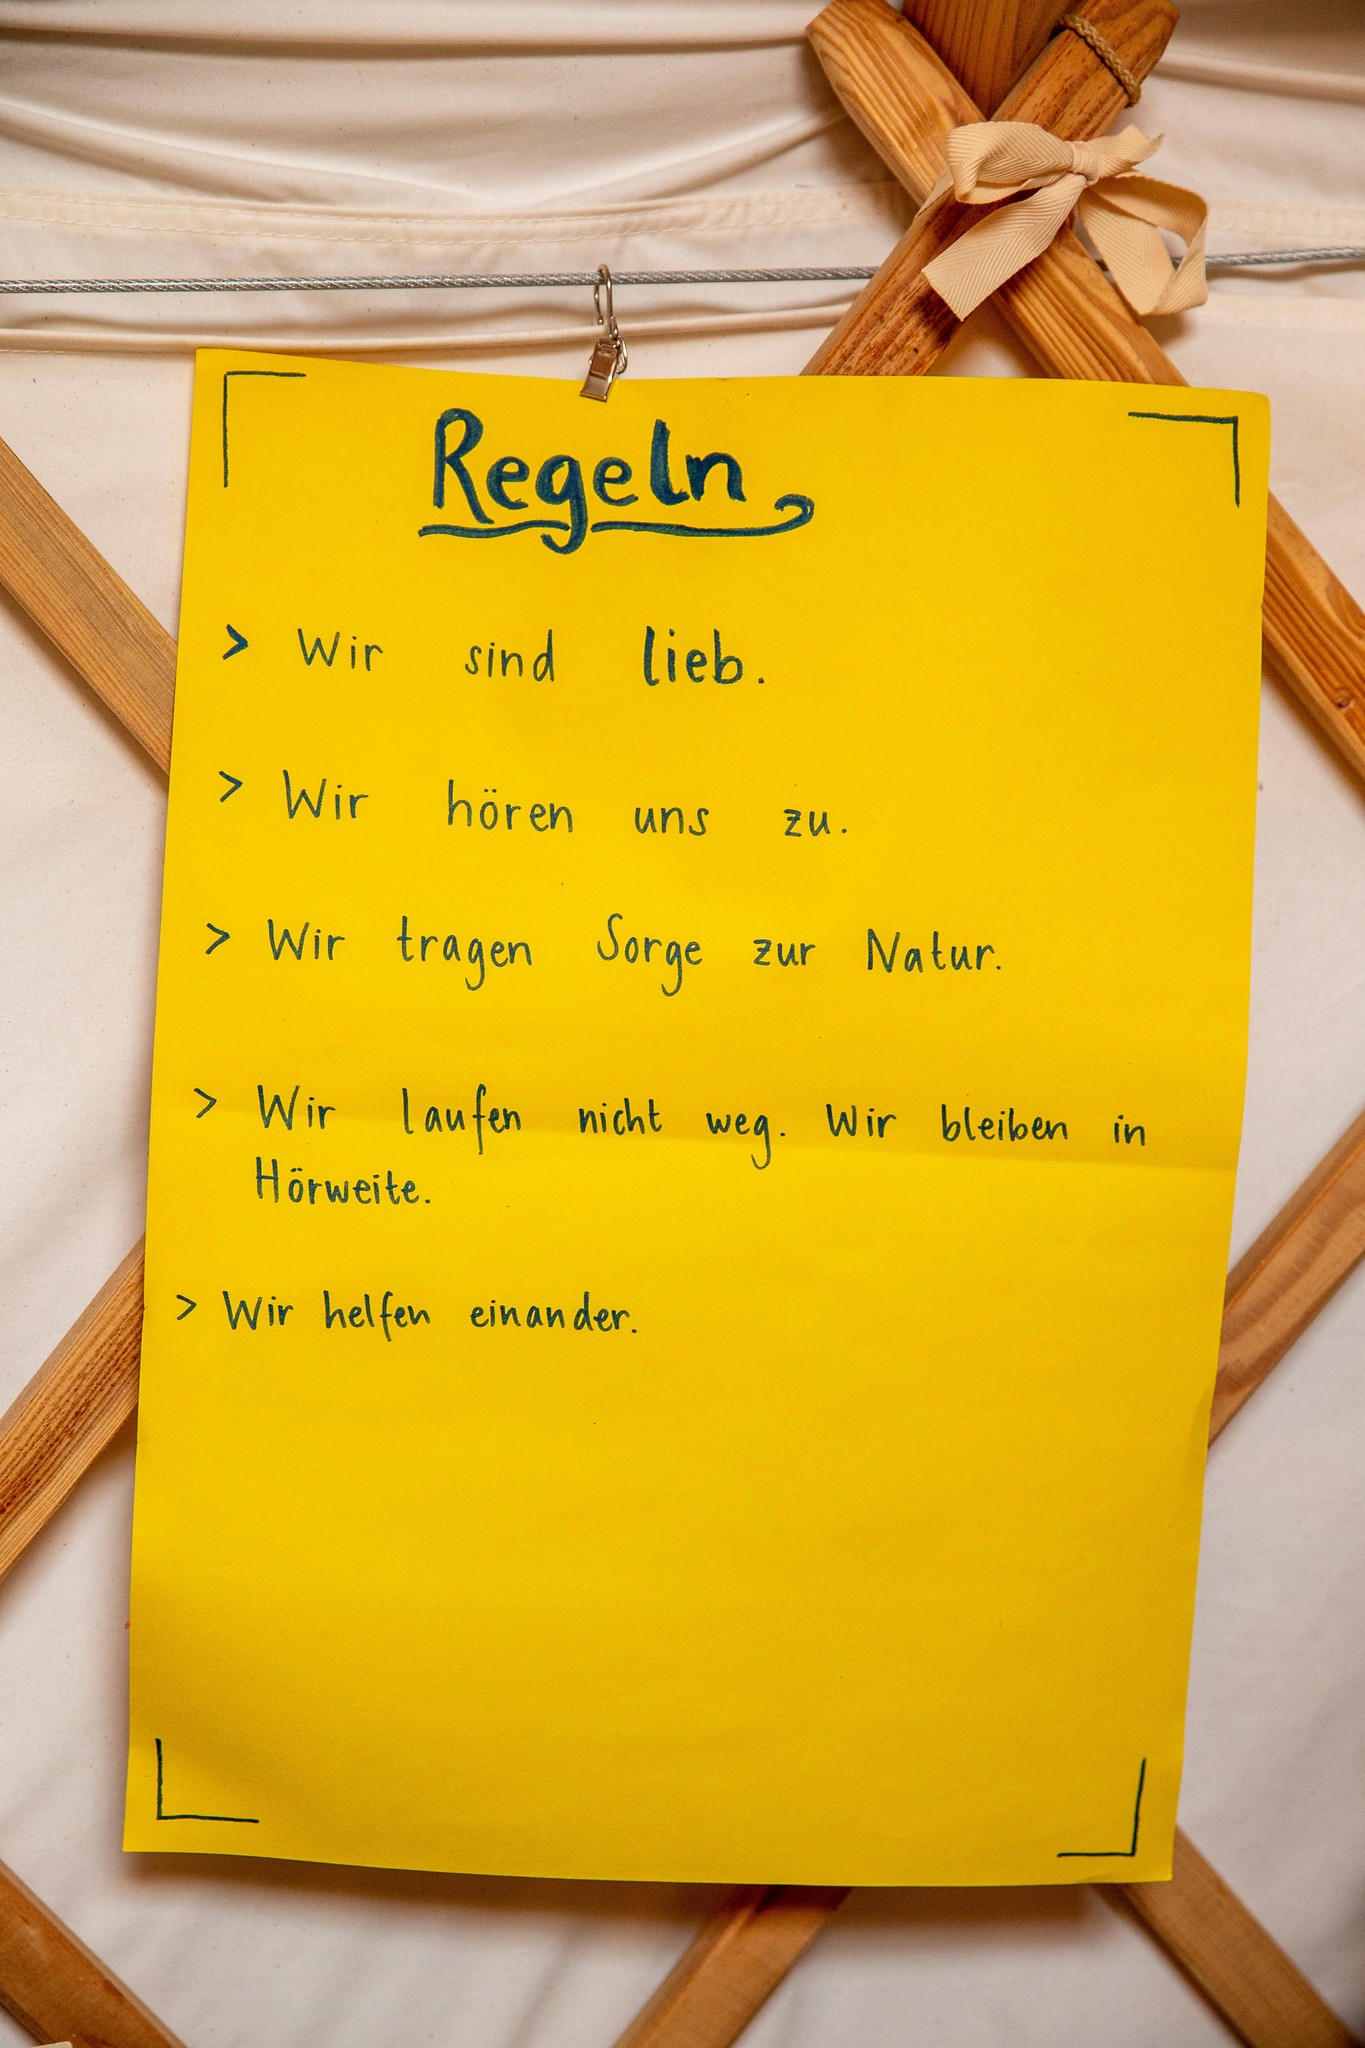 Regeln
> Wir sind lieb.
> Wir hören uns zu.
> Wir tragen Sorge zur Natur.
> Wir laufen nicht weg. Wir bleiben in
Hörweite.
> Wir helfen einander.